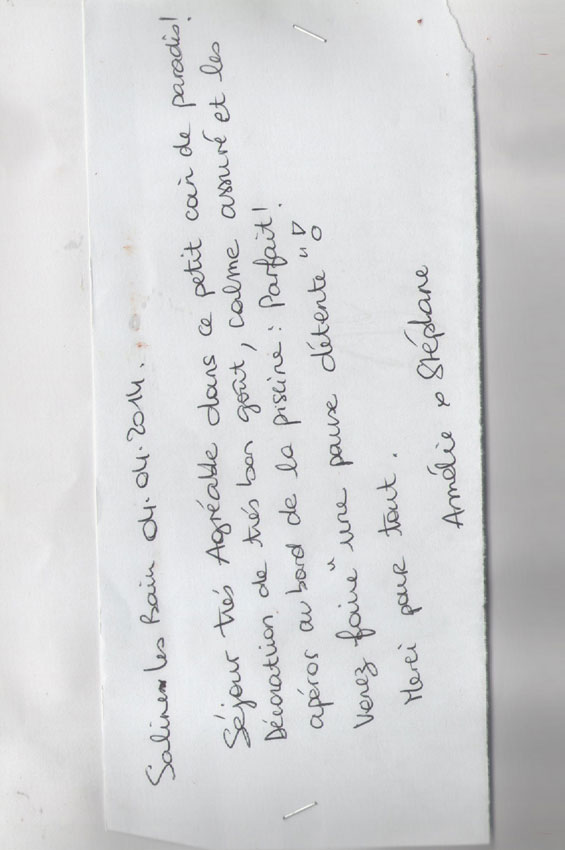 Salines les Bain 04.04.2014.
Séjour très Agréable dans ce petit coin de paradis!
Décoration de très bon goût, calme assuré et les
apéros au bord de la piscine : Parfait!
Venez faire "une pause détente"!
Merci pour tout.
Amélie & Stéphane